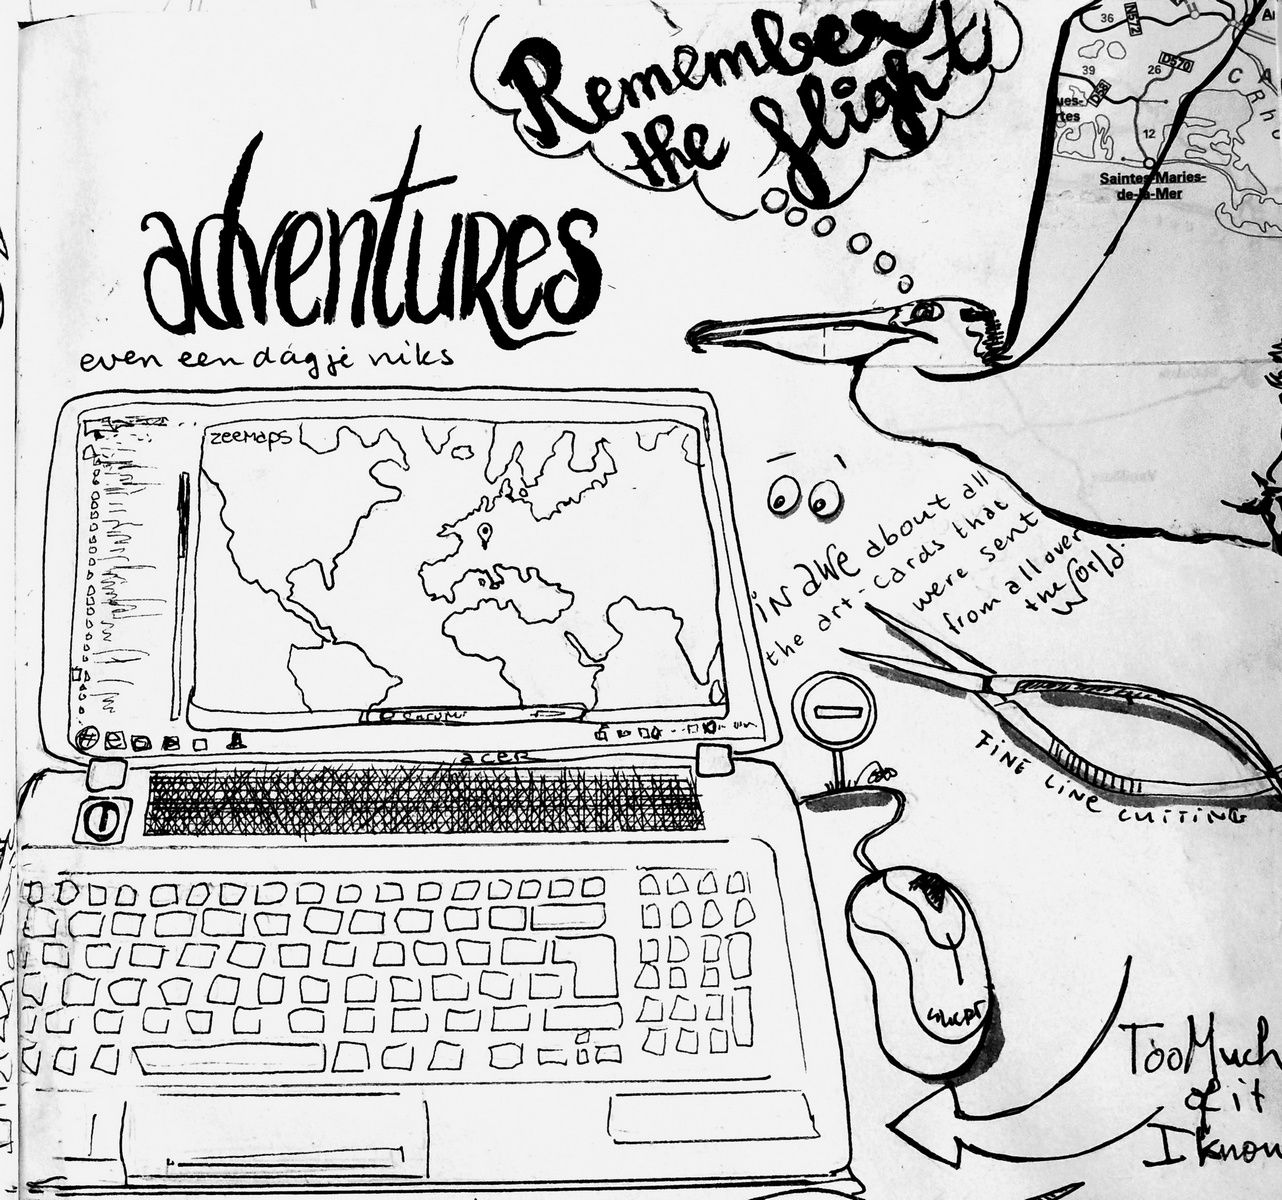 Remember
the flight
36
N572
39
26
D570
D58
12
C A
Saintes-Maries-
de-la-Mer
adventures
even een dagje niks
zeemaps
in awe about all
the art-cards that
were sent
from all over
the world.
FINE LINE CUTTING
acer
Too Much
of it
I know